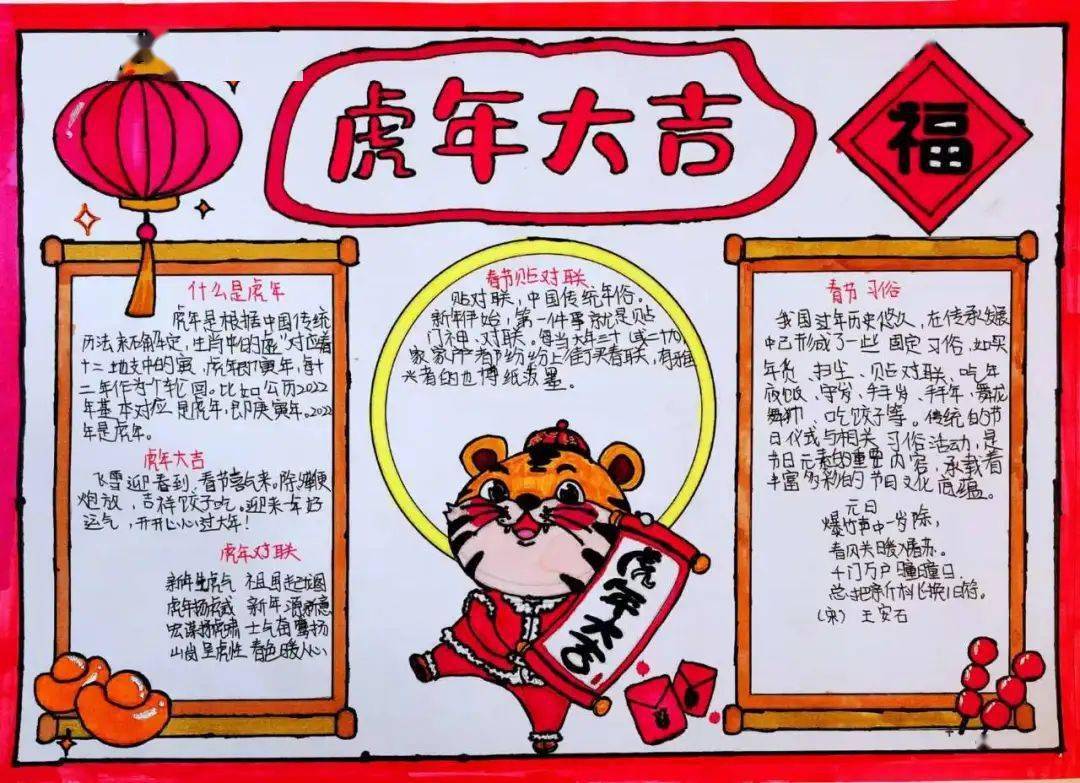 虎年大吉
福
什么是虎年
虎年是根据中国传统
历法来确定,生肖中的虎"对应着
十二地支中的寅,虎年即寅年,每十
二年作为个轮回。比如公历2022
年基本对应是虎年,即庚寅年。2022
年是虎年。
虎年大吉
飞雪迎春到,春节喜气来。除夕鞭
炮放,吉祥饺子吃。迎来一年好
运气,开开心心过大年!
虎年对联
新年生虎气 祖国起龙图
虎年扬虎威 新年添新意
宏谋扬虎啸 士气奋鹰扬
山岗呈虎性 春色暖人心
春节贴对联
贴对联,中国传统年俗。
新年伊始,第一件事就是贴
门神、对联。每当大年三十(或二十九)
家家户户都纷纷上街买春联,有雅
兴者的也博纸泼墨。
虎年大吉
春节习俗
我国过年历史悠久,在传承发展
中已形成了一些固定习俗,如买
年货、扫尘、贴对联、吃年
夜饭、守岁、拜岁、拜年、舞龙
舞狮、吃饺子等。传统的节
日仪式与相关习俗活动,是
节日元素的重要内容,承载着
丰富多彩的节日文化底蕴。
元日
爆竹声中一岁除,
春风关暖入屠苏。
千门万户曈曈日
总把新桃换旧符。
(宋) 王安石